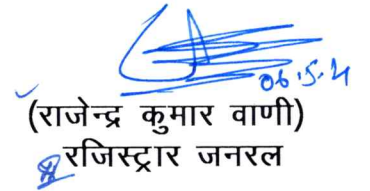 06.5.21
(राजेन्द्र कुमार वाणी)
रजिस्ट्रार जनरल